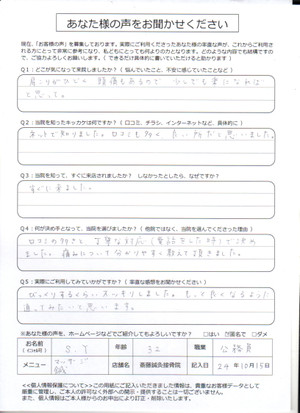 あなた様の声をお聞かせください
現在、「お客様の声」を募集しております。実際にご利用くださったあなた様の率直な声が、これからご利用される方にとって非常に参考になり、私どもにとっても何よりの力となります。どのような内容でも結構ですので、ご協力よろしくお願いします。(できるだけ具体的に書いていただけると助かります)
Q1:どこが気になって来院しましたか?(悩んでいたこと、不安に感じていたことなど)
肩こりがひどく 頭痛もあるので 少しでも楽になれば
と思って。
Q2:当院を知ったキッカケは何ですか?(口コミ、チラシ、インターネットなど、具体的に)
ネットで知りました。口コミも多く 良い所だと思いました。
Q3:当院を知って、すぐに来店されましたか? しなかったとしたら、なぜですか?
すぐに来ました。
Q4:何が決め手となって、当院を選びましたか?(他院ではなく、当院を選んでくださった理由)
口コミの多さと、丁寧な対応(電話をした時)で決め
ました。痛みについて分かりやすく教えて頂きました。
Q5:実際にご利用してみていかがですか?(率直な感想をお聞かせください)
びっくりするくらいスッキリしました。もっと良くなるよう
通ってみたいと思います。
※あなた様の声を、ホームページなどでご紹介してもよろしいですか? □はい ☑匿名で □ダメ
お名前 S.T 年齢 32 職業 公務員
メニュー マッサージ 鍼 店舗名 斎藤鍼灸接骨院 記入日 29年10月15日
<<個人情報保護について>>この用紙にご記入いただきました情報は、貴重なお客様データとして
厳重に管理し、ご本人の許可なく外部への開示・提供することは一切ございません。
個人情報はご本人様からのお申出により訂正・削除いたします。